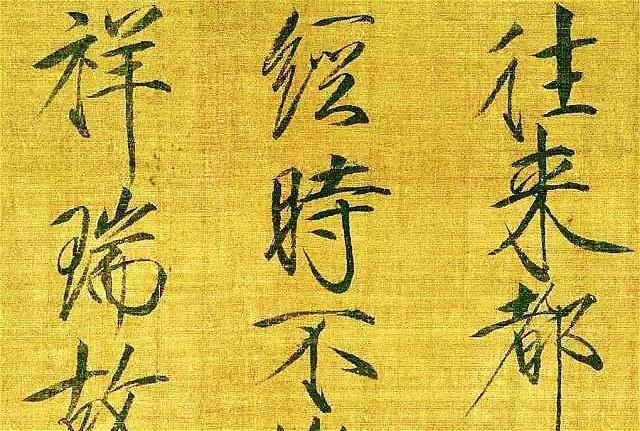 往来都
經時不
祥瑞故